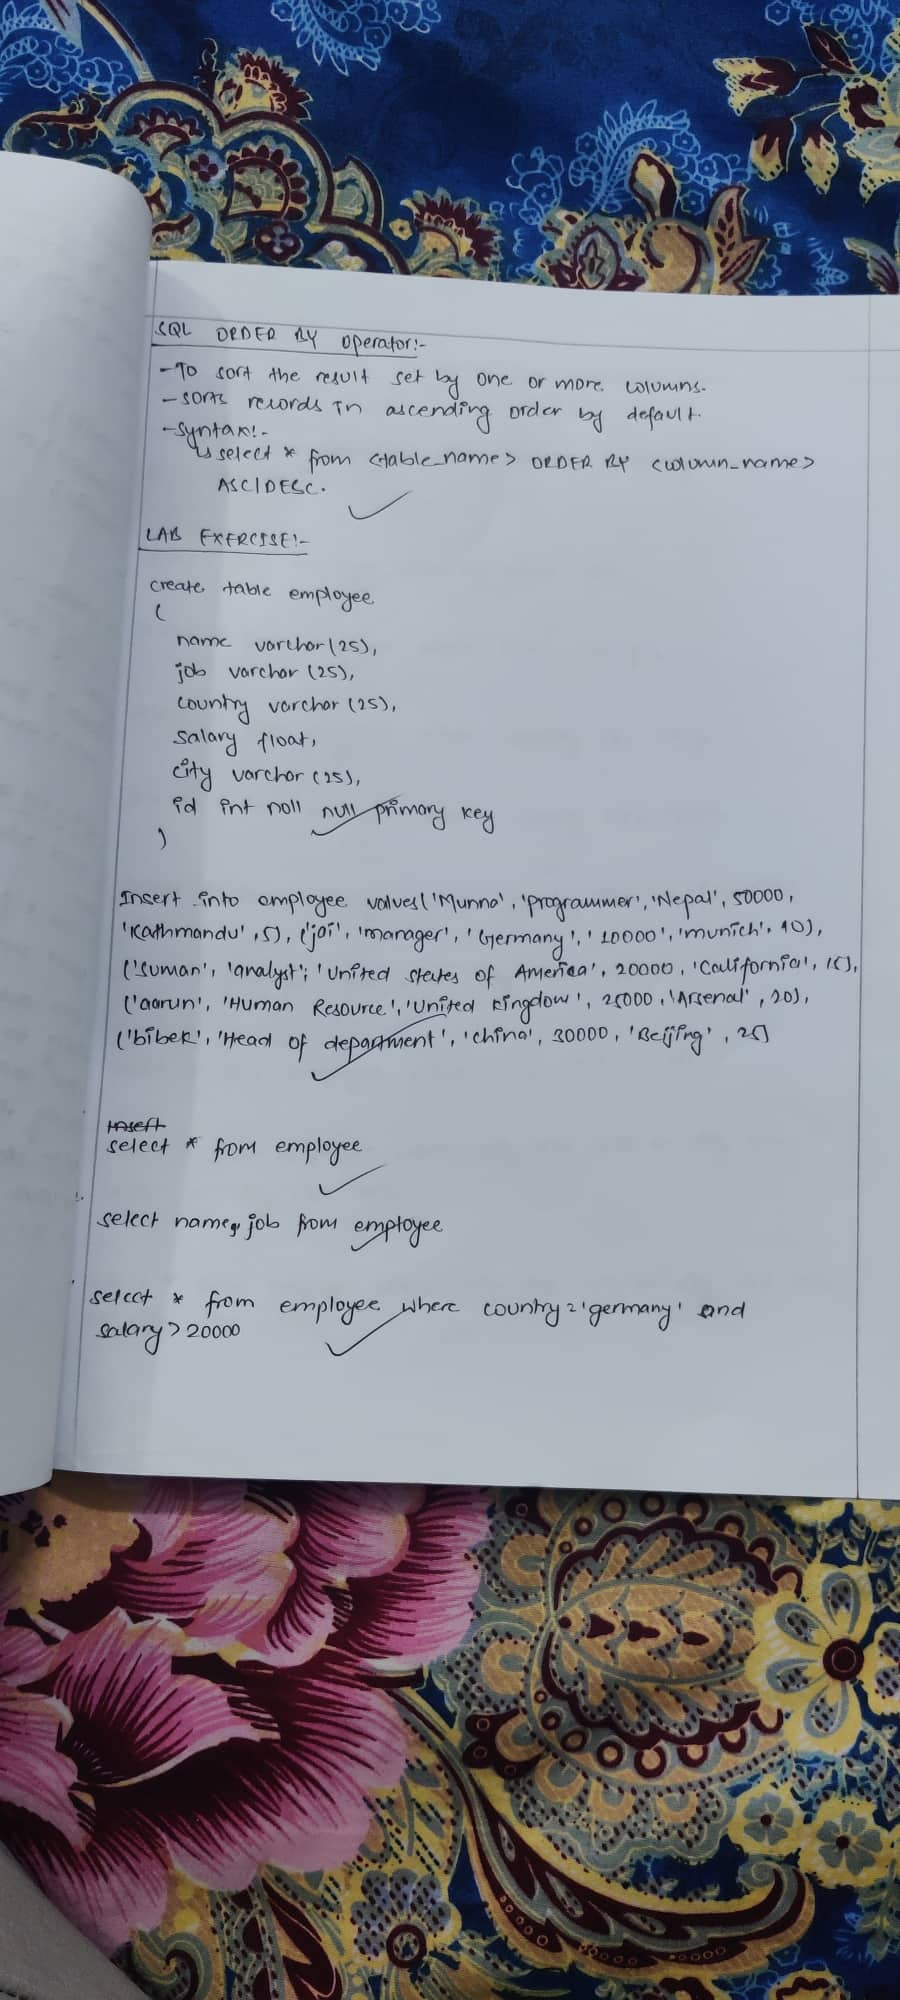 SQL ORDER BY operator:-
- To sort the result set by one or more columns.
- sorts records in ascending order by default.
- Syntax:-
↳ select * from <table_name> ORDER BY <column_name>
ASC|DESC.
LAB EXERCISE:-
create table employee
(
name varchar(25),
job varchar (25),
country varchar (25),
salary float,
city varchar (25),
id int noll null primary key
)
Insert into employee values('Munna', 'programmer', 'Nepal', 50000,
'Kathmandu', 5), ('jai', 'manager', 'Germany', '10000', 'munich', 10),
('suman', 'analyst', 'United states of America', 20000, 'California', 15),
('aarun', 'Human Resource', 'United kingdow', 25000, 'Arsenal', 20),
('bibek', 'Head of department', 'china', 30000, 'Beijing', 25)
Insert
select * from employee
select name, job from employee
select * from employee where country='germany' and
salary > 20000